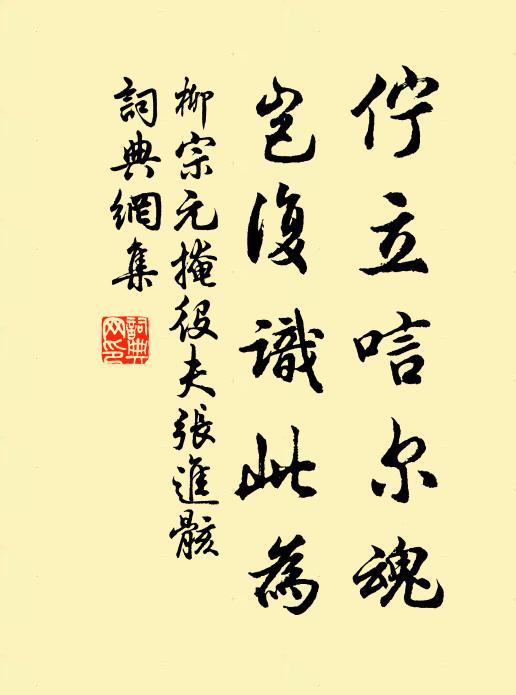 佇立唁尔魂
岂復識此為
柳宗元掩役夫張進骸
詞典網集
詞典網印